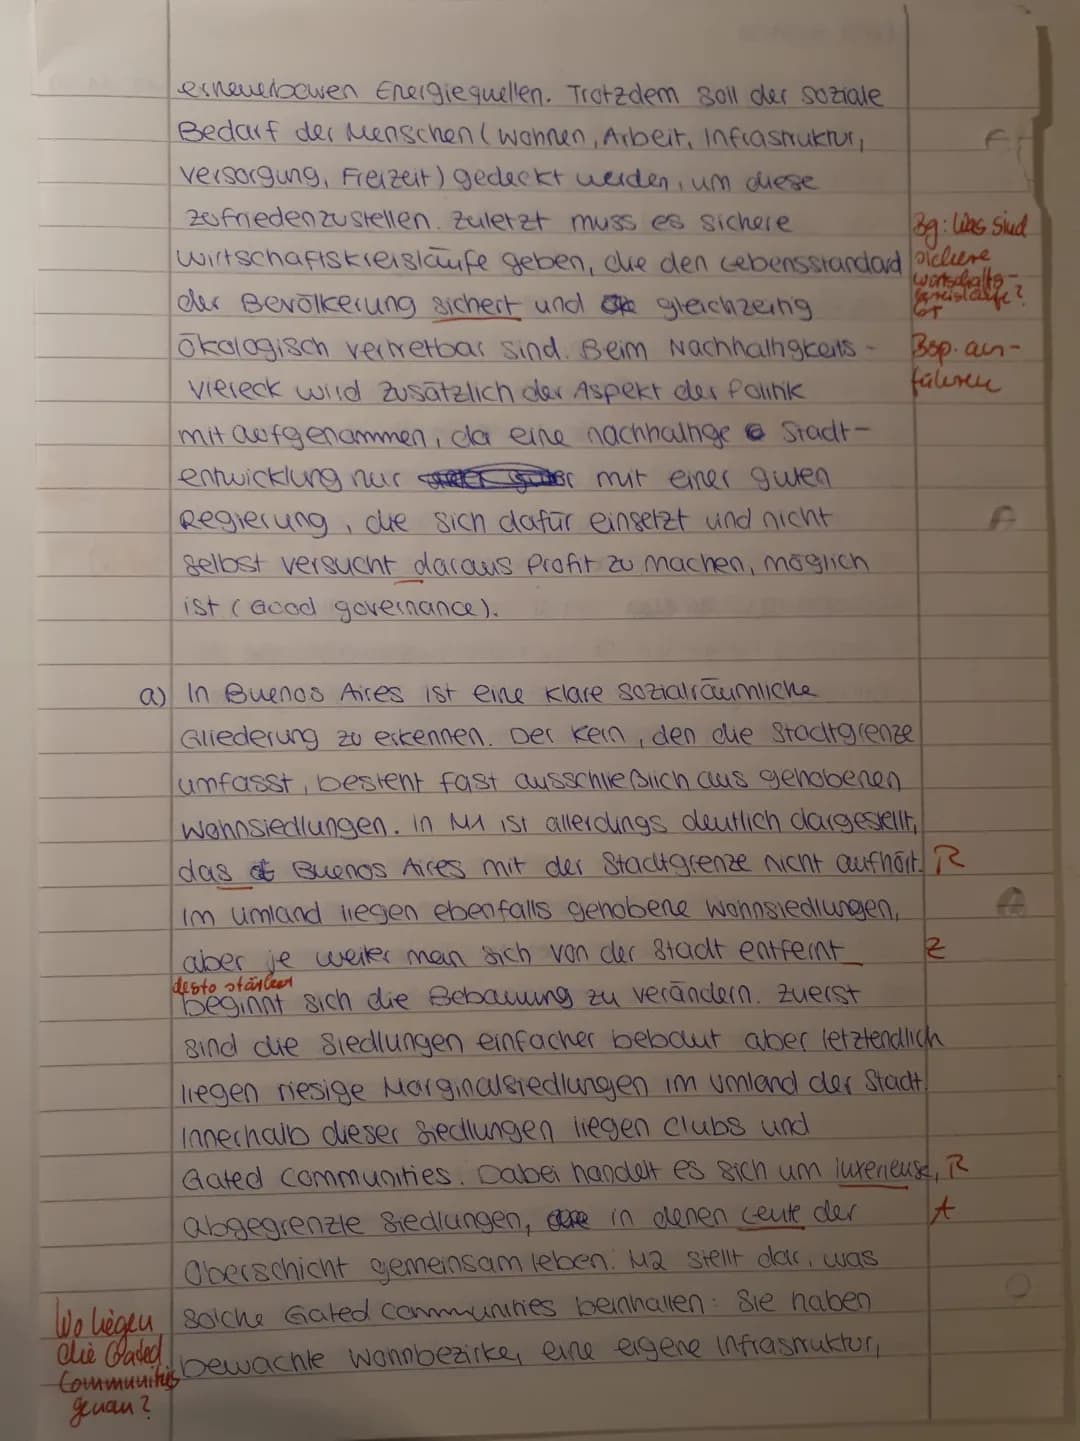 erneuerbaren Energiequellen. Trotzdem soll der soziale
Bedarf der Menschen (Wohnen, Arbeit, Infrastruktur,
Versorgung, Freizeit) gedeckt werden, um diese
zufriedenzustellen. Zuletzt muss es sichere
Wirtschaftskreisläufe geben, die den Lebensstandard
der Bevölkerung sichert und gleichzeitig
Bg: Was sind
sichere
Wirtschafts-
kreisläufe?
ökologisch vertretbar sind. Beim Nachhaltigkeits-
Bsp. an-
führen
viereck wird zusätzlich der Aspekt der Politik
mit aufgenommen, da eine nachhaltige Stadt-
entwicklung nur mit einer guten
Regierung, die sich dafür einsetzt und nicht
selbst versucht daraus Profit zu machen, möglich
ist (Good governance).
a) In Buenos Aires ist eine klare sozialräumliche
Gliederung zu erkennen. Der Kern, den die Stadtgrenze
umfasst, besteht fast ausschließlich aus gehobenen
Wohnsiedlungen. In M1 ist allerdings deutlich dargestellt,
das Buenos Aires mit der Stadtgrenze nicht aufhört. R
Im Umland liegen ebenfalls gehobene Wohnsiedlungen,
aber je weiter man sich von der Stadt entfernt Z
desto stärker
beginnt sich die Bebauung zu verändern. Zuerst
sind die Siedlungen einfacher bebaut aber letztendlich
liegen riesige Marginalsiedlungen im Umland der Stadt.
Innerhalb dieser Siedlungen liegen Clubs und
Gated Communities. Dabei handelt es sich um luxerieuse, R
abgegrenzte Siedlungen, in denen Leute der A
Oberschicht gemeinsam leben. M2 stellt dar, was
solche Gated Communities beinhalten: Sie haben
bewachte Wohnbezirke, eine eigene Infrastruktur,
Wo liegen
die Gated
Communities
genau?